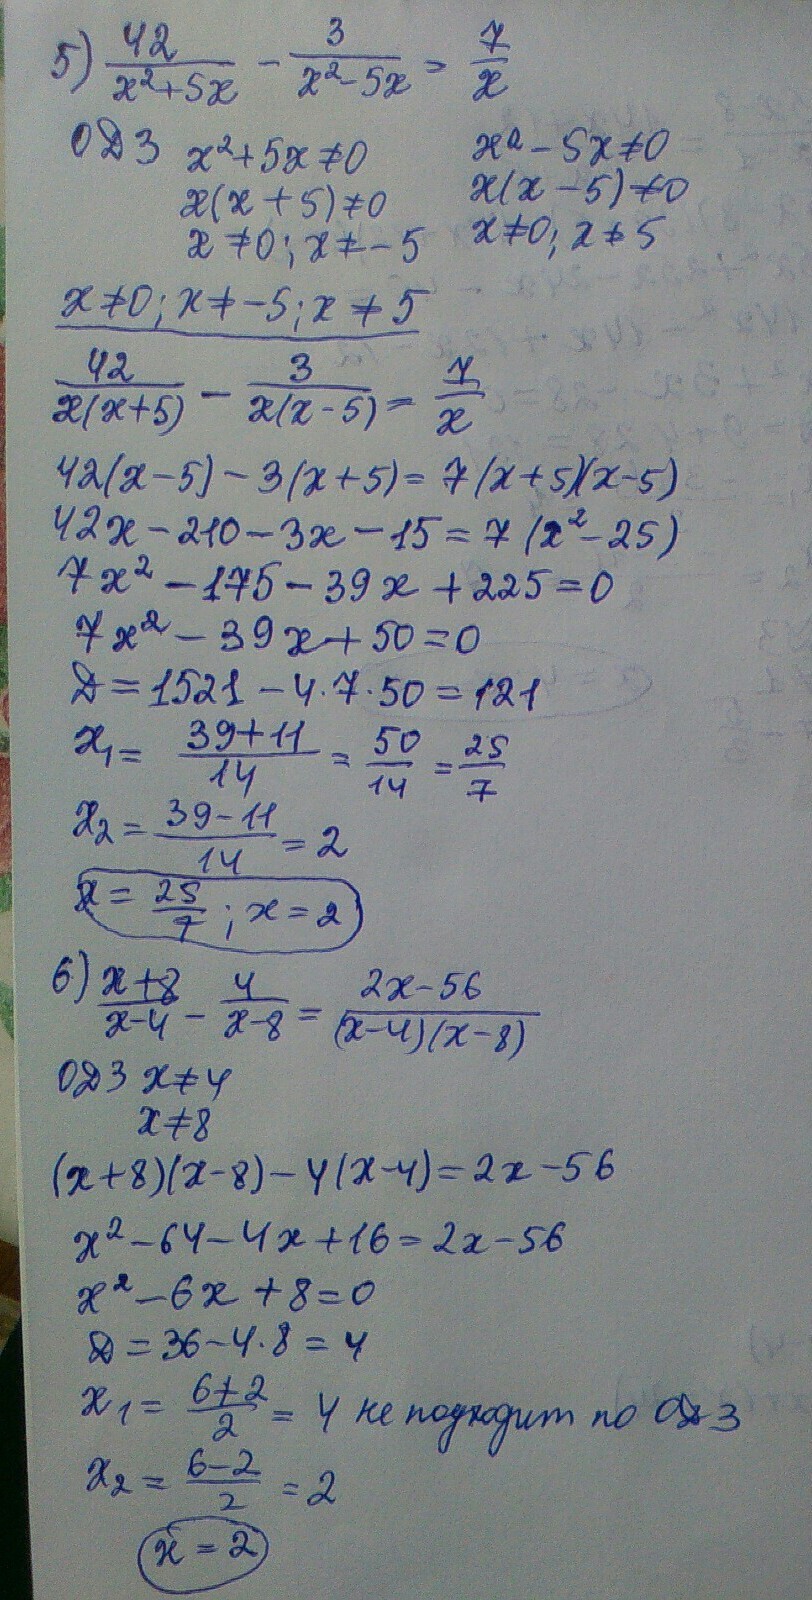 5) 42/(x²+5x) - 3/(x²-5x) = 7/x
ОДЗ x²+5x≠0 x²-5x≠0
x(x+5)≠0 x(x-5)≠0
x≠0; x≠-5 x≠0; x≠5
x≠0; x≠-5; x≠5
42/(x(x+5)) - 3/(x(x-5)) = 7/x
42(x-5)-3(x+5)=7(x+5)(x-5)
42x-210-3x-15=7(x²-25)
7x²-175-39x+225=0
7x²-39x+50=0
D=1521-4·7·50=121
x₁= (39+11)/14 = 50/14 = 25/7
x₂= (39-11)/14 = 2
x= 25/7; x=2
6) (x+8)/(x-4) - 4/(x-8) = (2x-56)/((x-4)(x-8))
ОДЗ x≠4
x≠8
(x+8)(x-8)-4(x-4)=2x-56
x²-64-4x+16=2x-56
x²-6x+8=0
D=36-4·8=4
x₁= (6+2)/2 = 4 не подходит по ОДЗ
x₂= (6-2)/2 = 2
x=2